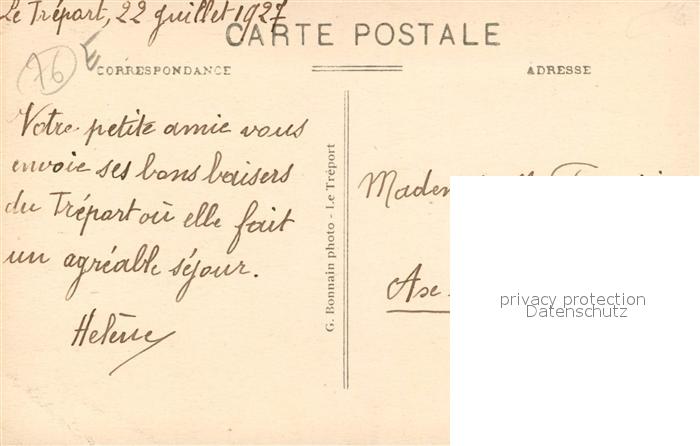 Le Tréport, 22 juillet 1927
CARTE POSTALE
76 E
CORRESPONDANCE
ADRESSE
Votre petite amie vous
envoie ses bons baisers
du Tréport où elle fait
un agréable séjour.
Helène
G. Bonnain photo - Le Tréport
privacy protection
Datenschutz